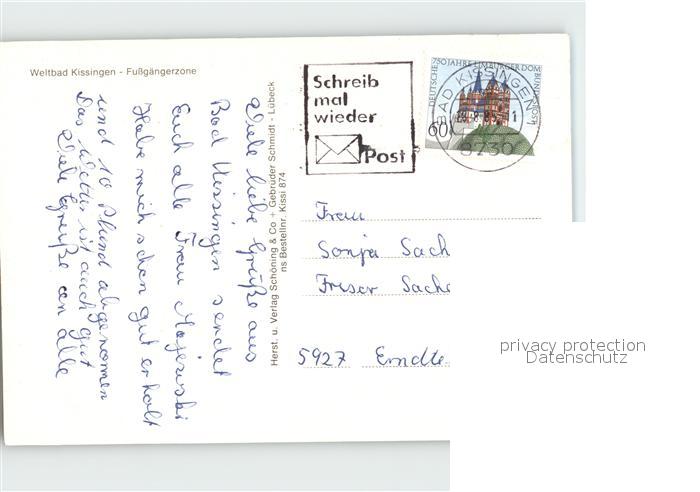 Weltbad Kissingen - Fußgängerzone
Viele liebe Grüße aus
Bad Kissingen sendet
Euch alle Frau Majewski
Habe mich schon gut erholt
und 10 Pfund abgenommen
Das Wetter ist auch gut
Viele Grüße an alle
Herst. u. Verlag Schöning & Co + Gebrüder Schmidt - Lübeck
ns Bestellnr. Kissi 874
Schreib
mal
wieder
Post
750 JAHRE LIMBURGER DOM
DEUTSCHE BUNDESPOST
60
BAD KISSINGEN
8730
Frau
Sonja Sach
Friser Sach
5927 Erndte
privacy protection
Datenschutz